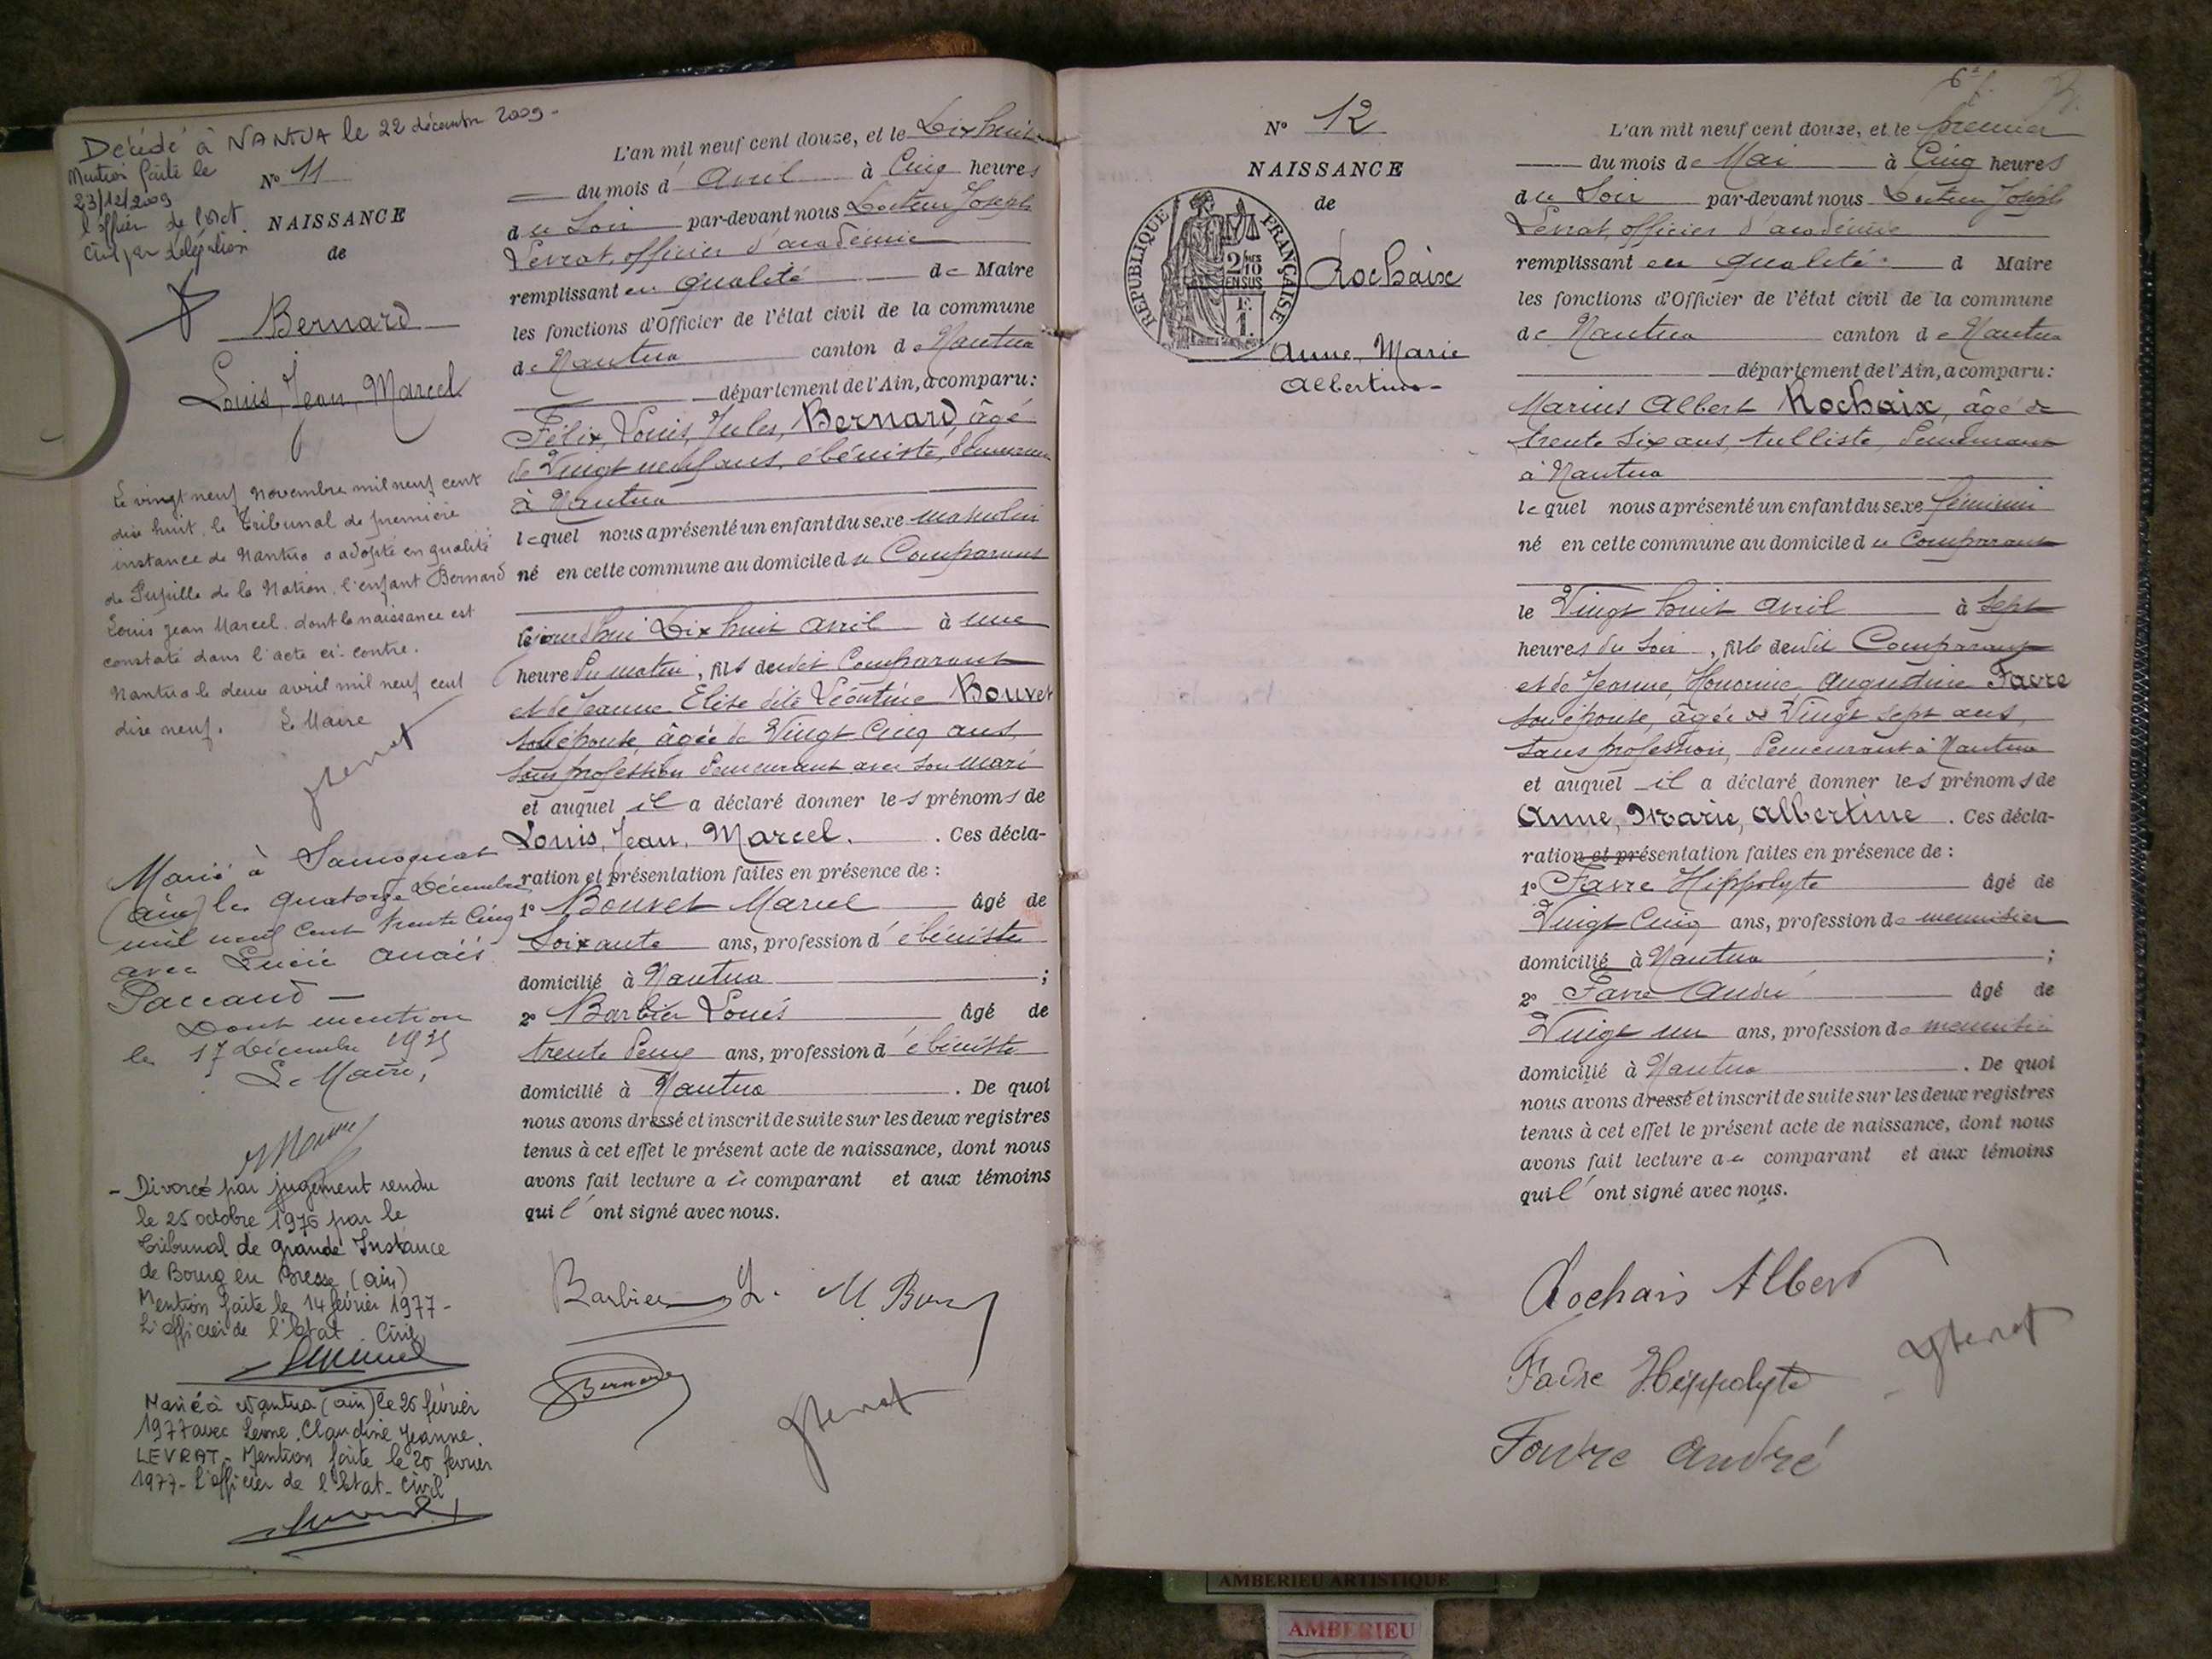 Décédé à NANTUA le 22 décembre 2009 -
Mention faite le
23/12/2009
l'officier de l'Etat
Civil par délégation
N° 11
NAISSANCE
de
Bernard
Louis, Jean, Marcel
Le vingt neuf novembre mil neuf cent
dix huit, le Tribunal de première
instance de Nantua a adopté en qualité
de Pupille de la Nation, l'enfant Bernard
Louis Jean Marcel, dont la naissance est
constaté dans l'acte ci-contre.
Nantua le deux avril mil neuf cent
dix neuf. Le Maire
Marié à Samognat
(Ain) le quatorze Décembre
mil neuf cent trente cinq
avec Lucie Anaïs
Paccand -
Dont mention
le 17 décembre 1935
Le Maire,
- Divorcé par jugement rendu
le 25 octobre 1976 par le
Tribunal de grande Instance
de Bourg en Bresse (ain)
Mention faite le 14 février 1977 -
L'officier de l'Etat Civil,
Marié à Nantua (ain) le 26 février
1977 avec Claudine Jeanne
LEVRAT - Mention faite le février
1977 - L'officier de l'Etat-Civil
L'an mil neuf cent douze, et le Dix huit
du mois d' Avril à Cinq heures
du Soir par-devant nous Docteur Joseph
Levrat, officier d'académie
remplissant en qualité de Maire
les fonctions d'Officier de l'état civil de la commune
de Nantua canton de Nantua
département de l'Ain, a comparu :
Félix, Louis, Jules, Bernard, âgé
de Vingt neuf ans, ébéniste, demeurant
à Nantua
lequel nous a présenté un enfant du sexe masculin
né en cette commune au domicile du Comparant
Dix huit avril à une
heure du matin, fils dudit Comparant
et de Jeanne Elise dite Léontine Bouvet
son épouse, âgée de Vingt Cinq ans,
sans profession demeurant avec son mari
et auquel il a déclaré donner les prénoms de
Louis, Jean, Marcel. . Ces décla-
ration et présentation faites en présence de :
1° Bouvet Marcel âgé de
Soixante ans, profession d' ébéniste
domicilié à Nantua ;
2° Barbier Louis âgé de
trente deux ans, profession d' ébéniste
domicilié à Nantua . De quoi
nous avons dressé et inscrit de suite sur les deux registres
tenus à cet effet le présent acte de naissance, dont nous
avons fait lecture au comparant et aux témoins
qui l' ont signé avec nous.
Barbier L.
Bernard
N° 12
NAISSANCE
de
RÉPUBLIQUE FRANÇAISE
2/10
EN SUS
F.
1.
Rochaix
Anne, Marie
Albertine -
L'an mil neuf cent douze, et le premier
du mois de Mai à Cinq heures
du Soir par-devant nous Docteur Joseph
Levrat, officier d'académie
remplissant en qualité d Maire
les fonctions d'Officier de l'état civil de la commune
de Nantua canton de Nantua
département de l'Ain, a comparu :
Marius Albert Rochaix, âgé de
trente six ans, tulliste, demeurant
à Nantua
lequel nous a présenté un enfant du sexe féminin
né en cette commune au domicile du Comparant
le Vingt huit avril à Sept
heures du Soir, fille dudit Comparant
et de Jeanne, Honorine, Augustine Favre
son épouse, âgée de Vingt sept ans,
sans profession, demeurant à Nantua
et auquel il a déclaré donner les prénoms de
Anne, Marie, Albertine . Ces décla-
ration et présentation faites en présence de :
1° Favre Hippolyte âgé de
Vingt Cinq ans, profession de menuisier
domicilié à Nantua ;
2° Favre André âgé de
Vingt un ans, profession de menuisier
domicilié à Nantua . De quoi
nous avons dressé et inscrit de suite sur les deux registres
tenus à cet effet le présent acte de naissance, dont nous
avons fait lecture au comparant et aux témoins
qui l' ont signé avec nous.
Rochaix Albert
Favre Hippolyte
Favre André
AMBERIEU ARTISTIQUE
AMBERIEU